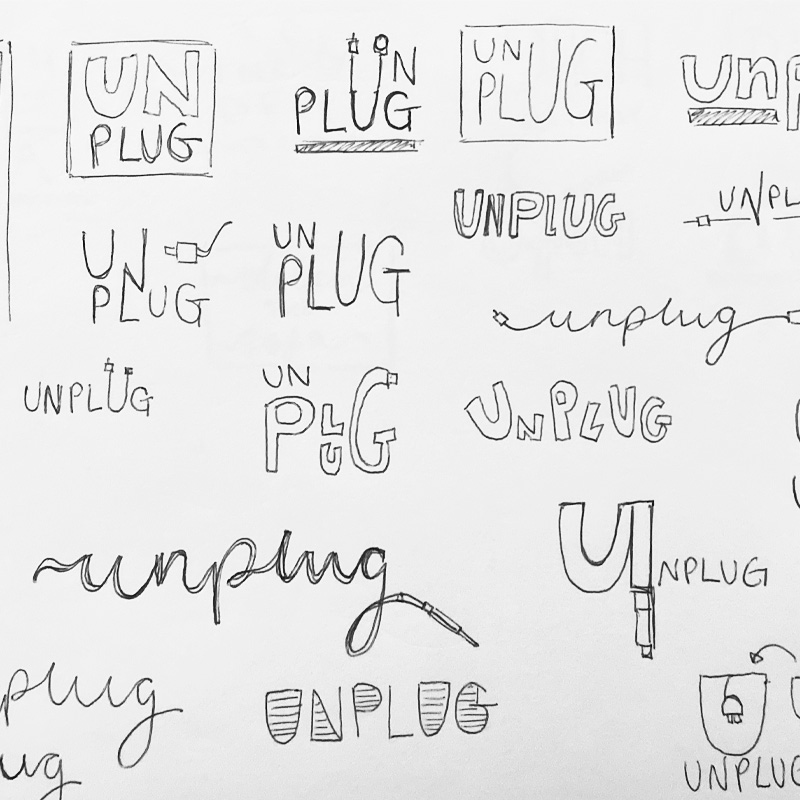 UN
PLUG
UN
PLUG
UN
PLUG
UNP
UNPLUG
UNPL
UN
PLUG
UN
PLUG
unplug
UNPLUG
UN
PLUG
UNPLUG
unplug
UNPLUG
plug
ug
UNPLUG
UNPLUG